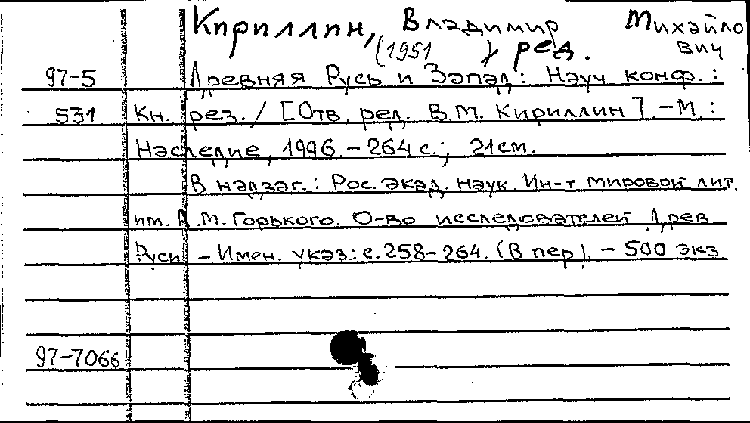 Кириллин, Владимир Михайло
(1951 ) ред. вич
97-5 Древняя Русь и Запад: Науч. конф.:
531 Кн. рез. / [Отв. ред. В.М. Кириллин]. -М.:
Наследие, 1996. - 264 с.; 21см.
В надзаг.: Рос. акад. наук. Ин-т мировой лит.
им. А.М. Горького. О-во исследователей Древ.
Руси - Имен. указ: с.258-264. (В пер) - 500 экз
97-7066